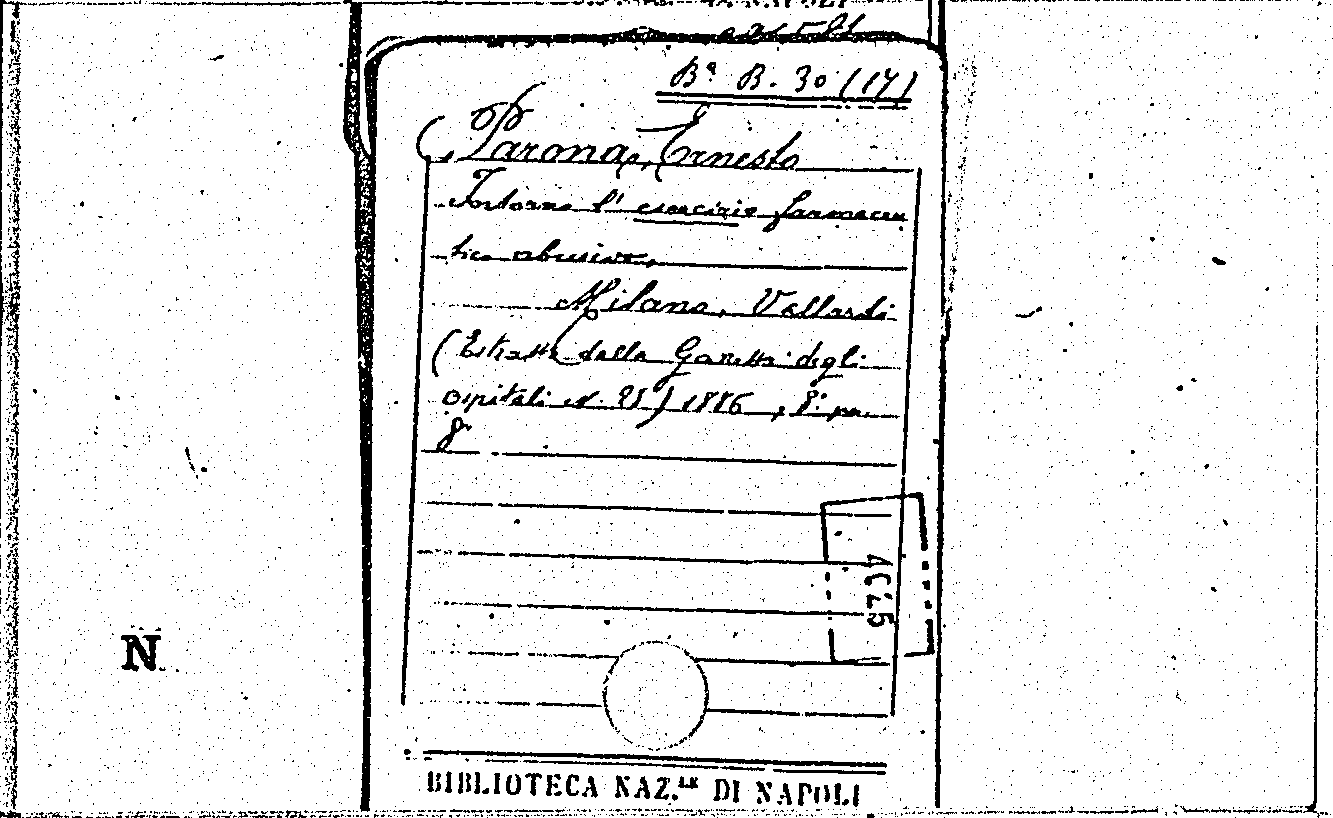 Bª B. 30 (17)
Parona, Ernesto
Intorno l' esercizio farmaceu
tico abusivo.
Milano, Vallardi
(Estratto dalla Gazzetta degli
ospitali N. 25) 1886, 8º pa.
8
4525
N
BIBLIOTECA NAZ.LE DI NAPOLI